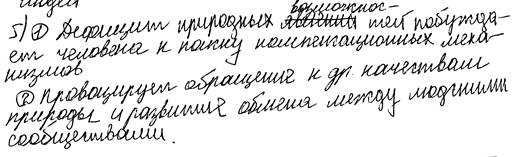 людей
возможнос-
5) ① Дефицит природных явлений тей побужда-
ет человека к поиску компенсационных меха-
низмов
② Провоцирует обращение к др. качествам
природы и развитие обмена между людскими
сообществами.